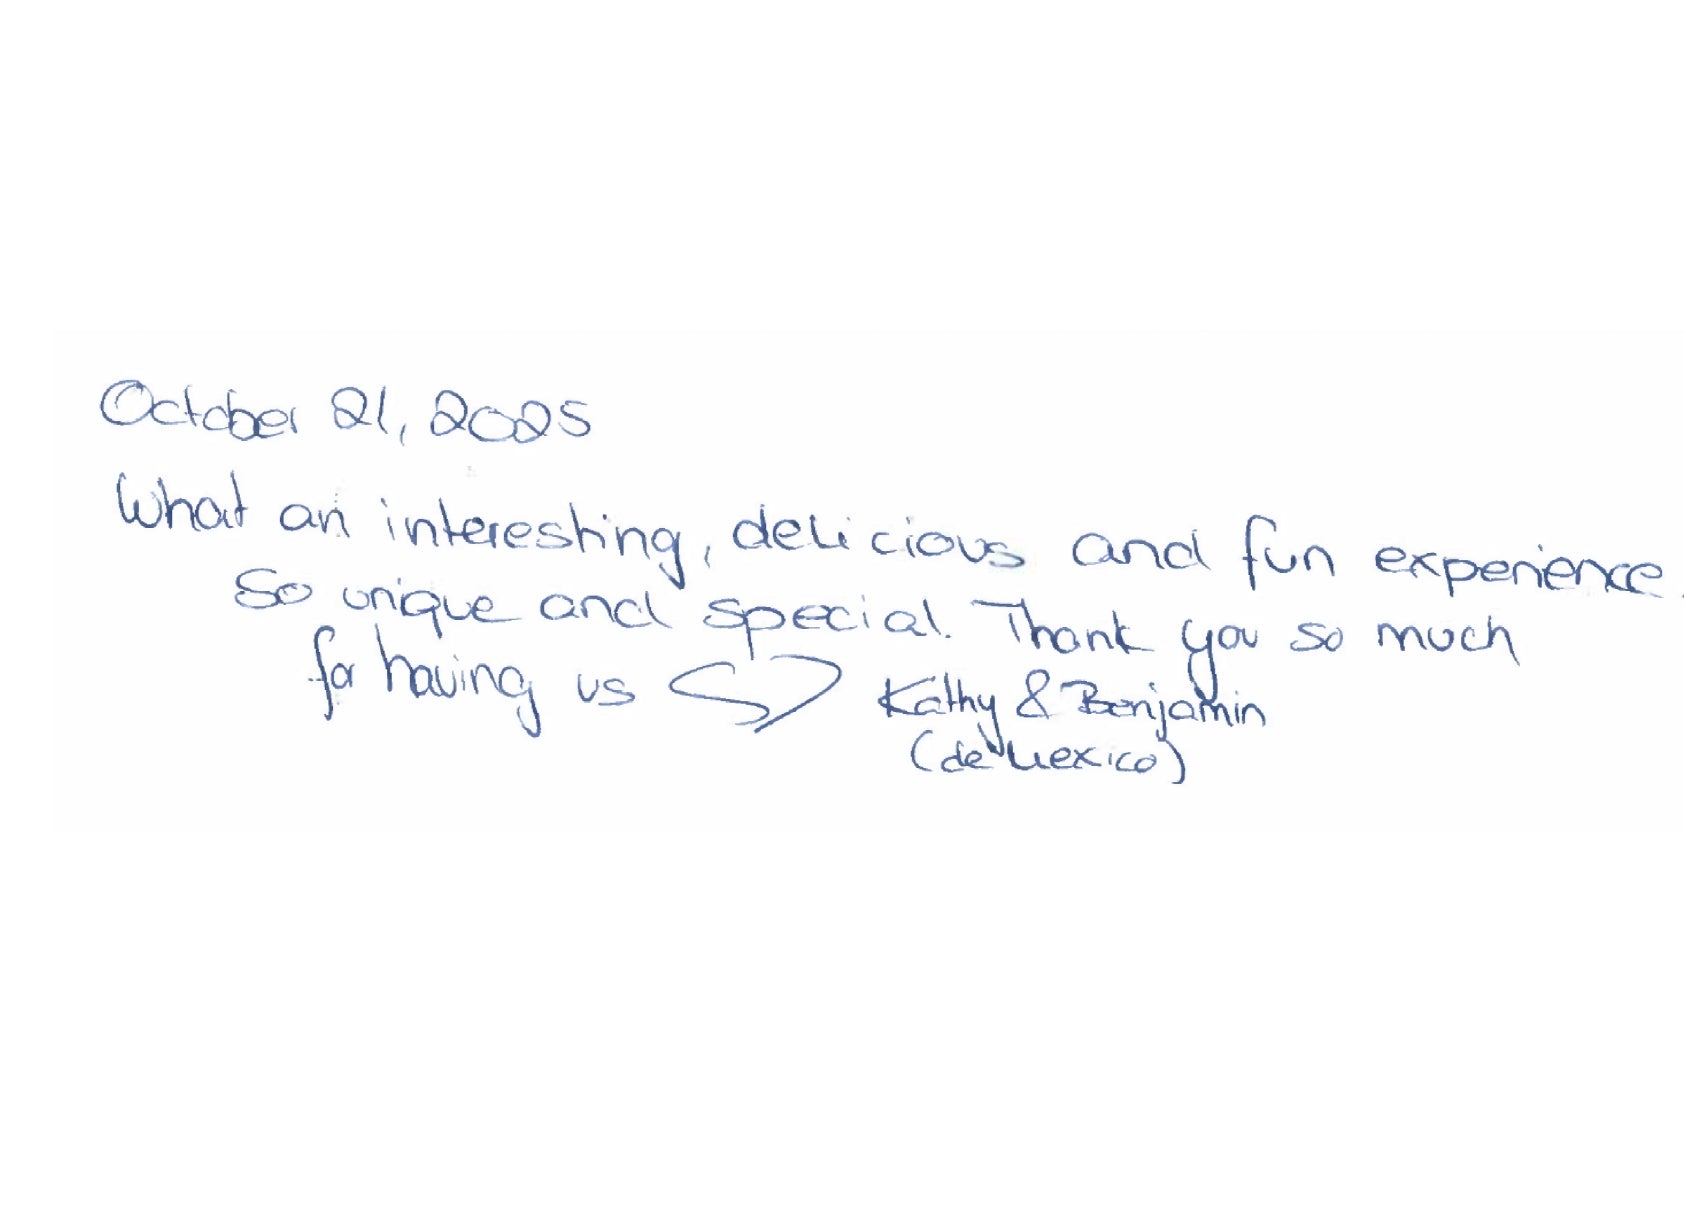 October 21, 2025
What an interesting, delicious and fun experience.
So unique and special. Thank you so much
for having us
Kathy & Benjamin
(de Mexico)